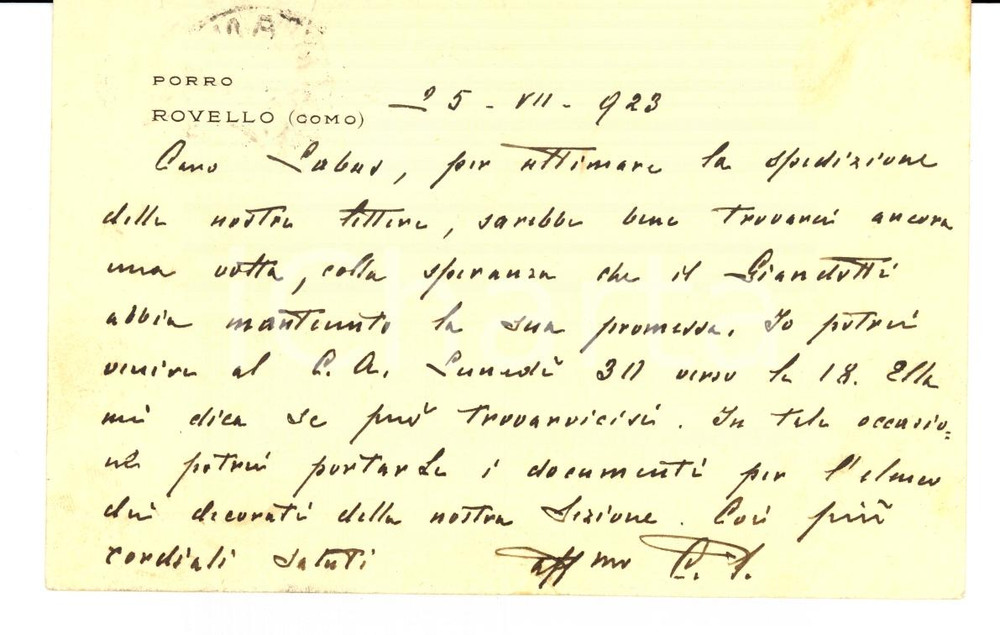 PORRO
ROVELLO (COMO)
25 - VII - 923
Caro Labus, per ultimare la spedizione
delle nostre lettere, sarebbe bene trovarci ancora
una volta, colla speranza che il Giandotti
abbia mantenuto la sua promessa. Io potrei
venire al C. A. Lunedì 30 verso le 18. Ella
mi dica se può trovarvicisi. In tale occasio=
ne potrei portarLe i documenti per l'elenco
dei decorati della nostra Sezione. Coi più
cordiali saluti affmo
iCharta